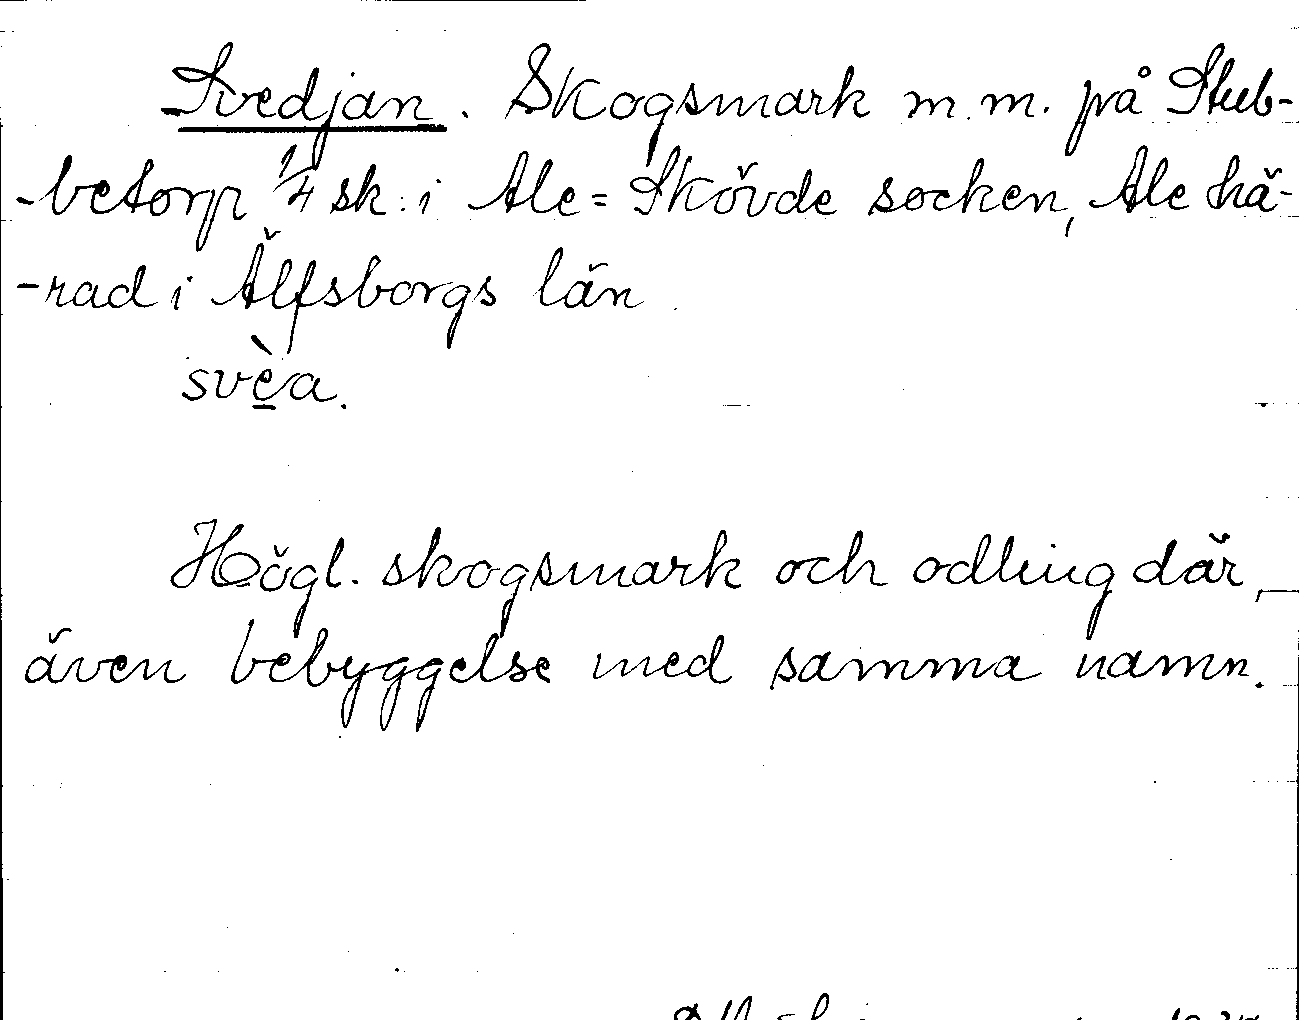 Svedjan. Skogsmark m.m. på Stub-
-betorp 1/4 sk: i Ale=Skövde socken, Ale hä-
-rad i Älfsborgs län.
svèa.
Högl. skogsmark och odling där,
även bebyggelse med samma namn.